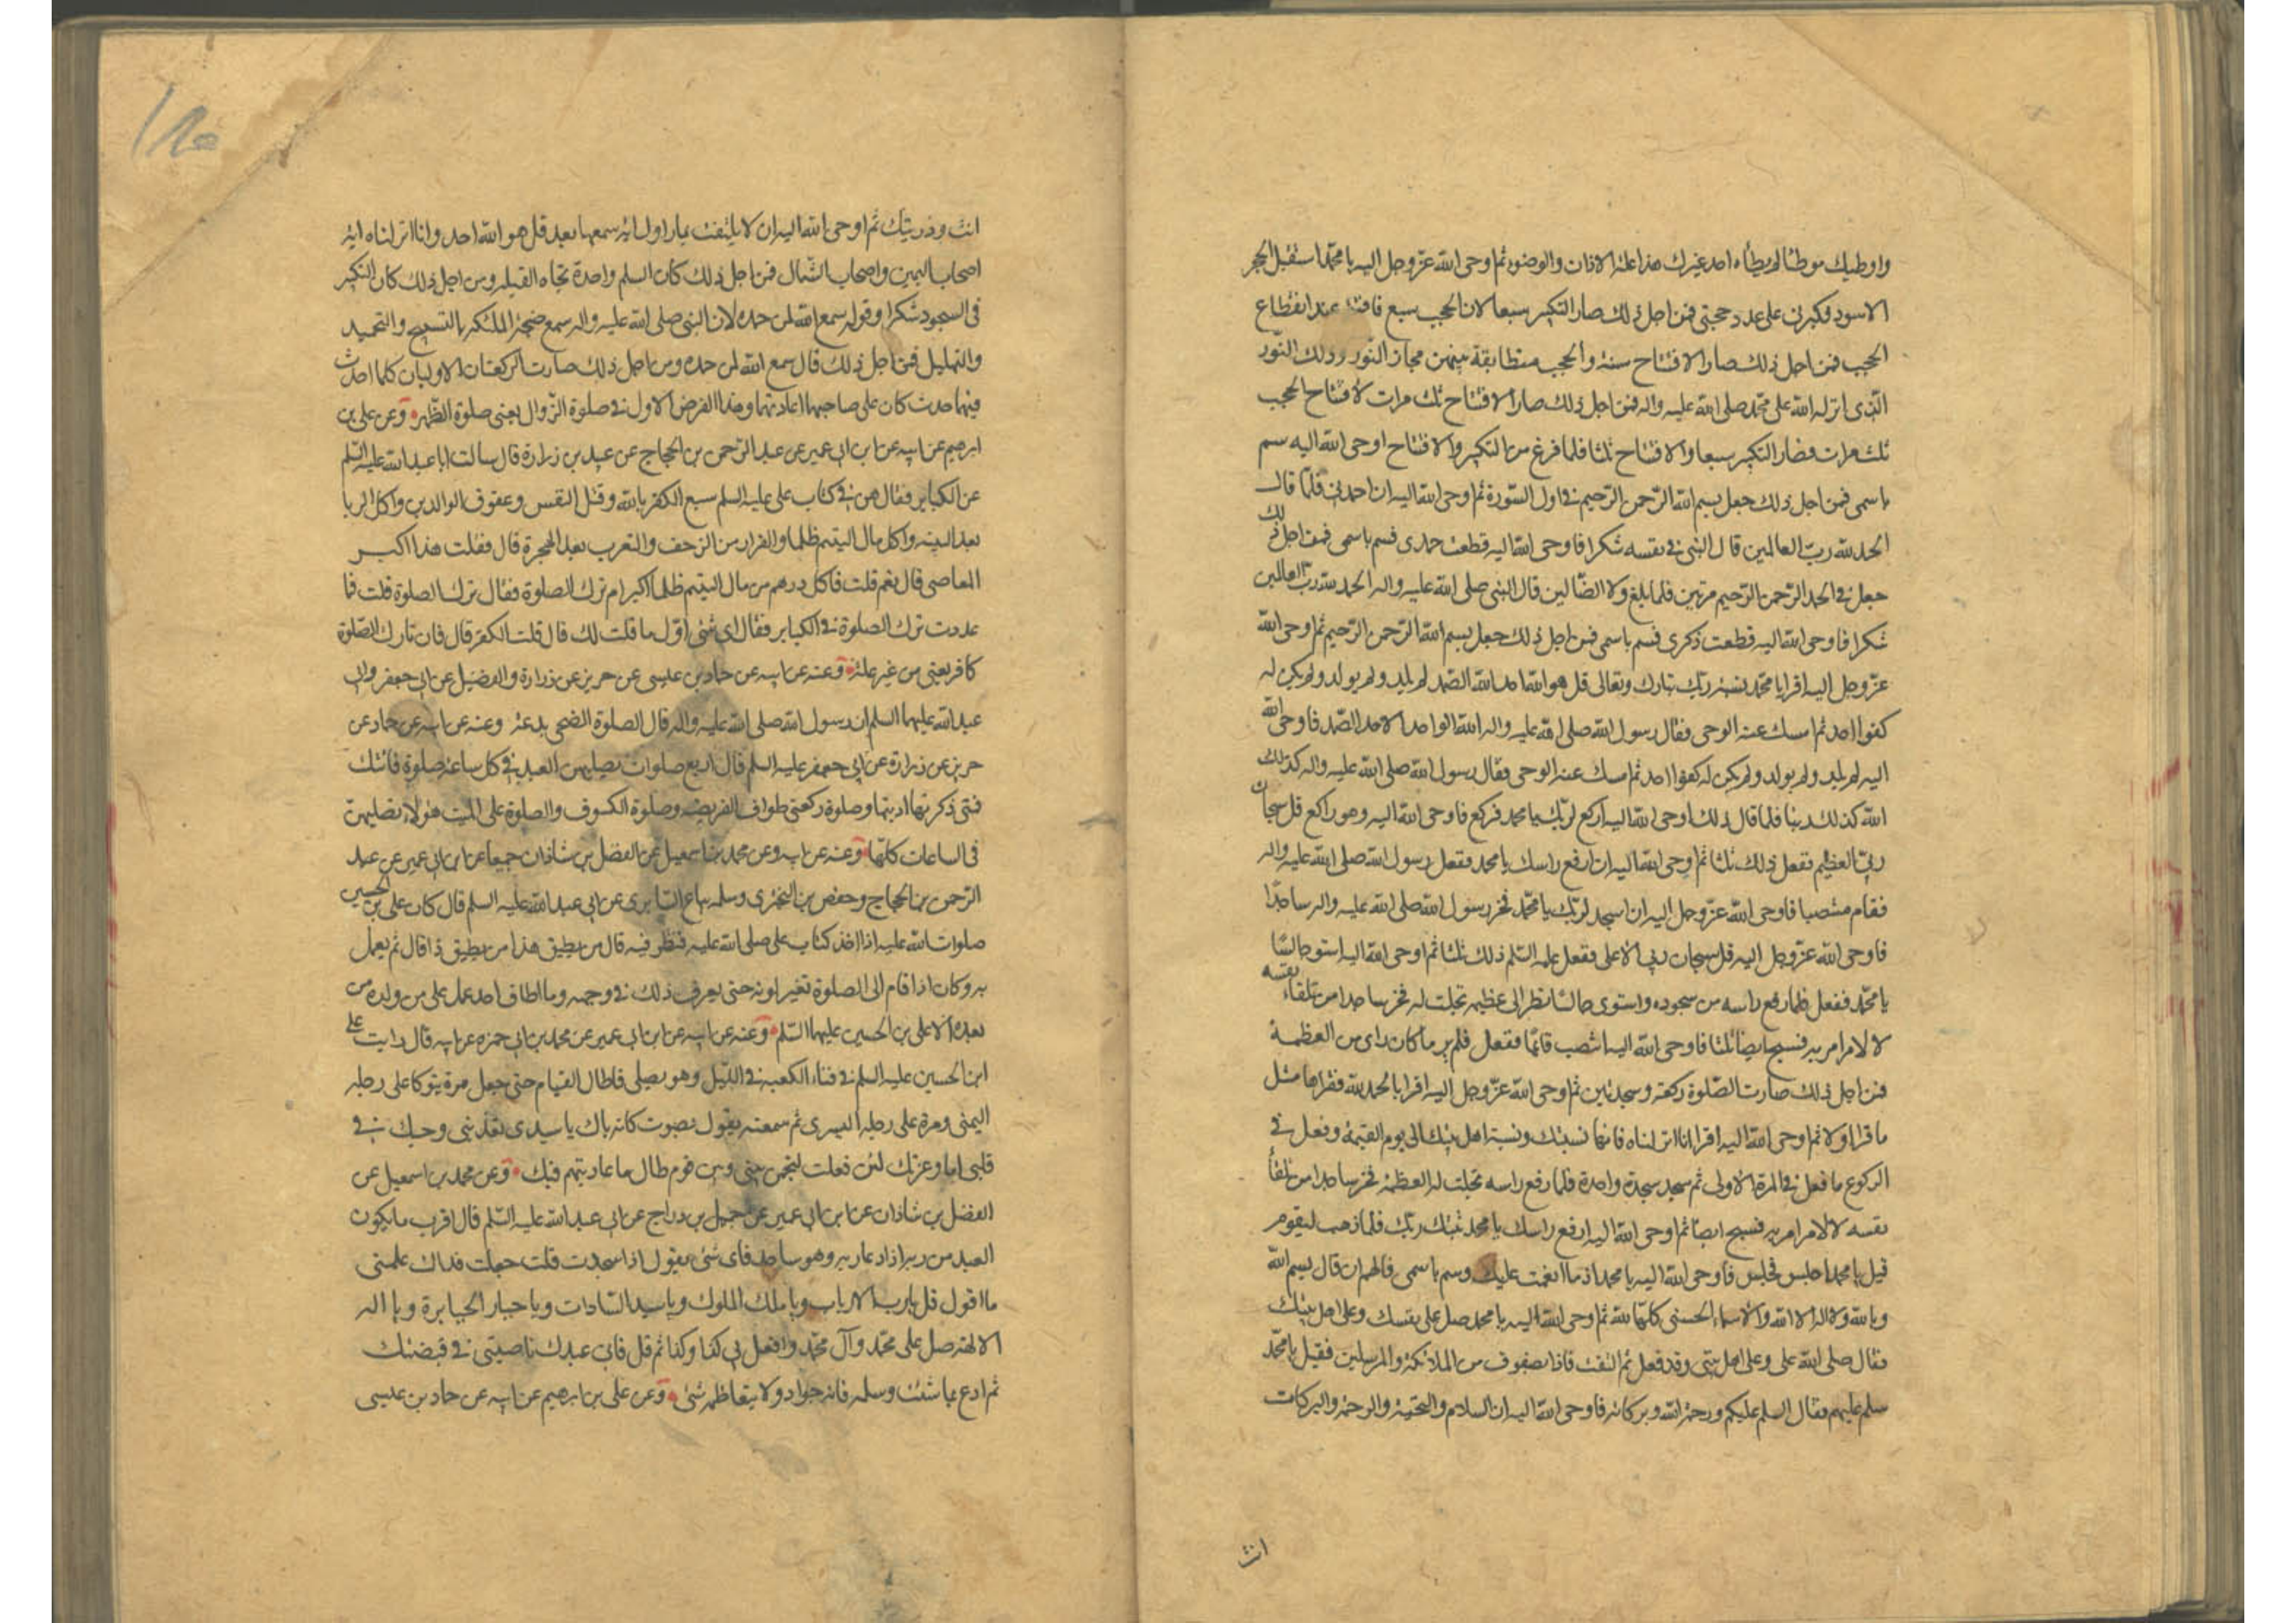 واوطيك موطئا لم يطأه احد غيرك هذا علة الاذان والوضوء ثم اوحى الله عز وجل اليه يا محمد استقبل الحجر
الاسود فكبرنى على عدد حجبى فمن اجل ذلك صار التكبير سبعا لان الحجب سبع فافتتح عند انقطاع
الحجب فمن اجل ذلك صار الافتتاح سنة والحجب متطابقة بينهن مجاز النور وذلك النور
الذى انزله الله على محمد صلى الله عليه واله فمن اجل ذلك صار الافتتاح ثلث مرات لافتتاح الحجب
ثلث مرات فصار التكبير سبعا والافتتاح ثلثا فلما فرغ من التكبير والافتتاح اوحى الله اليه سم
باسمى فمن اجل ذلك جعل بسم الله الرحمن الرحيم فى اول السورة ثم اوحى الله اليه ان احمدنى فلما قال
الحمد لله رب العالمين قال النبى فى نفسه شكرا فاوحى الله اليه قطعت حمدى فسم باسمى فمن اجل ذلك
جعل فى الحمد الرحمن الرحيم مرتين فلما بلغ ولا الضالين قال النبى صلى الله عليه واله الحمد لله رب العالمين
شكرا فاوحى الله اليه قطعت ذكرى فسم باسمى فمن اجل ذلك جعل بسم الله الرحمن الرحيم ثم اوحى الله
عز وجل اليه اقرا يا محمد نسبة ربك تبارك وتعالى قل هو الله احد الله الصمد لم يلد ولم يولد ولم يكن له
كفوا احد ثم امسك عنه الوحى فقال رسول الله صلى الله عليه واله الله الواحد الاحد الصمد فاوحى الله
اليه لم يلد ولم يولد ولم يكن له كفوا احد ثم امسك عنه الوحى فقال رسول الله صلى الله عليه واله كذلك
الله كذلك ربنا فلما قال ذلك اوحى الله اليه اركع لربك يا محمد فركع فاوحى الله اليه وهو راكع قل سبحان
ربى العظيم ففعل ذلك ثلثا ثم اوحى الله اليه ان ارفع راسك يا محمد ففعل رسول الله صلى الله عليه واله
فقام منتصبا فاوحى الله عز وجل اليه ان اسجد لربك يا محمد فخر رسول الله صلى الله عليه واله ساجدا
فاوحى الله عز وجل اليه قل سبحان ربى الاعلى ففعل عليه السلم ذلك ثلثا ثم اوحى الله اليه استو جالسا
يا محمد ففعل فلما رفع راسه من سجوده واستوى جالسا نظر الى عظمة تجلت له فخر ساجدا من تلقاء نفسه
لا لامر امر به فسبح ايضا ثلثا فاوحى الله اليه انتصب قائما ففعل فلم ير ما كان راى من العظمة
فمن اجل ذلك صارت الصلوة ركعة وسجدتين ثم اوحى الله عز وجل اليه اقرا بالحمد لله فقراها مثل
ما قرا اولا ثم اوحى الله اليه اقرا انا انزلناه فانها نسبتك ونسبة اهل بيتك الى يوم القيمة وفعل فى
الركوع ما فعل فى المرة الاولى ثم سجد سجدة واحدة فلما رفع راسه تجلت له العظمة فخر ساجدا من تلقاء
نفسه لا لامر امر به فسبح ايضا ثم اوحى الله اليه ارفع راسك يا محمد ثبتك ربك فلما ذهب ليقوم
قيل يا محمد اجلس فجلس فاوحى الله اليه يا محمد اذ ما انعمت عليك وسم باسمى فالهم ان قال بسم الله
وبالله ولا اله الا الله والاسماء الحسنى كلها لله ثم اوحى الله اليه يا محمد صل على نفسك وعلى اهل بيتك
فقال صلى الله على وعلى اهل بيتى وقد فعل ثم التفت فاذا بصفوف من الملائكة والمرسلين فقيل يا محمد
سلم عليهم فقال السلم عليكم ورحمة الله وبركاته فاوحى الله اليه ان السلام والتحية والرحمة والبركات
انت
انت وذريتك ثم اوحى الله اليه ان لا يلتفت يسارا اول اية سمعها بعد قل هو الله احد وانا انزلناه اية
اصحاب اليمين واصحاب الشمال فمن اجل ذلك كان السلم واحدة تجاه القبلة ومن اجل ذلك كان التكبير
فى السجود شكرا وقوله سمع الله لمن حمده لان النبى صلى الله عليه واله سمع ضجة الملئكة بالتسبيح والتحميد
والتهليل فمن اجل ذلك قال سمع الله لمن حمده ومن اجل ذلك صارت الركعتان الاوليان كلما احدث
فيهما حدث كان على صاحبهما اعادتهما وهذا الفرض الاول فى صلوة الزوال يعنى صلوة الظهر وعن على بن
ابرهيم عن ابيه عن ابن ابى عمير عن عبد الرحمن بن الحجاج عن عبيد بن زرارة قال سالت ابا عبد الله عليه السلم
عن الكباير فقال هن فى كتاب على عليه السلم سبع الكفر بالله وقتل النفس وعقوق الوالدين واكل الربا
بعد البينة واكل مال اليتيم ظلما والفرار من الزحف والتعرب بعد الهجرة قال فقلت هذا اكبر
المعاصى قال نعم قلت فاكل درهم من مال اليتيم ظلما اكبر ام ترك الصلوة فقال ترك الصلوة قلت فما
عددت ترك الصلوة فى الكباير فقال اى شئ اول ما قلت لك قال قلت الكفر قال فان تارك الصلوة
كافر يعنى من غير علة وعنه عن ابيه عن حماد بن عيسى عن حريز عن زرارة والفضيل عن ابى جعفر وابى
عبد الله عليهما السلم ان رسول الله صلى الله عليه واله قال الصلوة الضحى بدعة وعنه عن ابيه عن حماد عن
حريز عن زرارة عن ابى جعفر عليه السلم قال اربع صلوات يصليهن العبد فى كل ساعة صلوة فاتتك
فمتى ذكرتها اديتها وصلوة ركعتى طواف الفريضة وصلوة الكسوف والصلوة على الميت هؤلاء تصليهن
فى الساعات كلها وعنه عن ابيه وعن محمد بن اسمعيل عن الفضل بن شاذان جميعا عن ابن ابى عمير عن عبد
الرحمن بن الحجاج وحفص بن البخترى وسلمه بياع السابرى عن ابى عبد الله عليه السلم قال كان على بن الحسين
صلوات الله عليه اذا اخذ كتاب على صلى الله عليه فنظر فيه قال من يطيق هذا من يطيق ذا قال ثم يعمل
به وكان اذا قام الى الصلوة تغير لونه حتى يعرف ذلك فى وجهه وما اطاق احد عمل على من ولده من
بعده الا على بن الحسين عليهما السلم وعنه عن ابيه عن ابن ابى عمير عن محمد بن ابى حمزه عن ابيه قال رايت على
ابن الحسين عليه السلم فى فناء الكعبة فى الليل وهو يصلى فاطال القيام حتى جعل مرة يتوكا على رجله
اليمنى ومرة على رجله اليسرى ثم سمعته يقول بصوت كانه باك يا سيدى تعذبنى وحبك فى
قلبى اما وعزتك لئن فعلت لتجمعن بينى وبين قوم طال ما عاديتهم فيك وعن محمد بن اسمعيل عن
الفضل بن شاذان عن ابن ابى عمير عن جميل بن دراج عن ابى عبد الله عليه السلم قال اقرب ما يكون
العبد من ربه اذا دعا ربه وهو ساجد فاى شئ يقول اذا سجدت قلت جعلت فداك علمنى
ما اقول قل يا رب الارباب ويا ملك الملوك ويا سيد السادات ويا جبار الجبابرة ويا اله
الالهة صل على محمد وآل محمد وافعل بى كذا وكذا ثم قل فانى عبدك ناصيتى فى قبضتك
ثم ادع بما شئت وسله فانه جواد ولا يتعاظمه شئ وعن على بن ابرهيم عن ابيه عن حماد بن عيسى